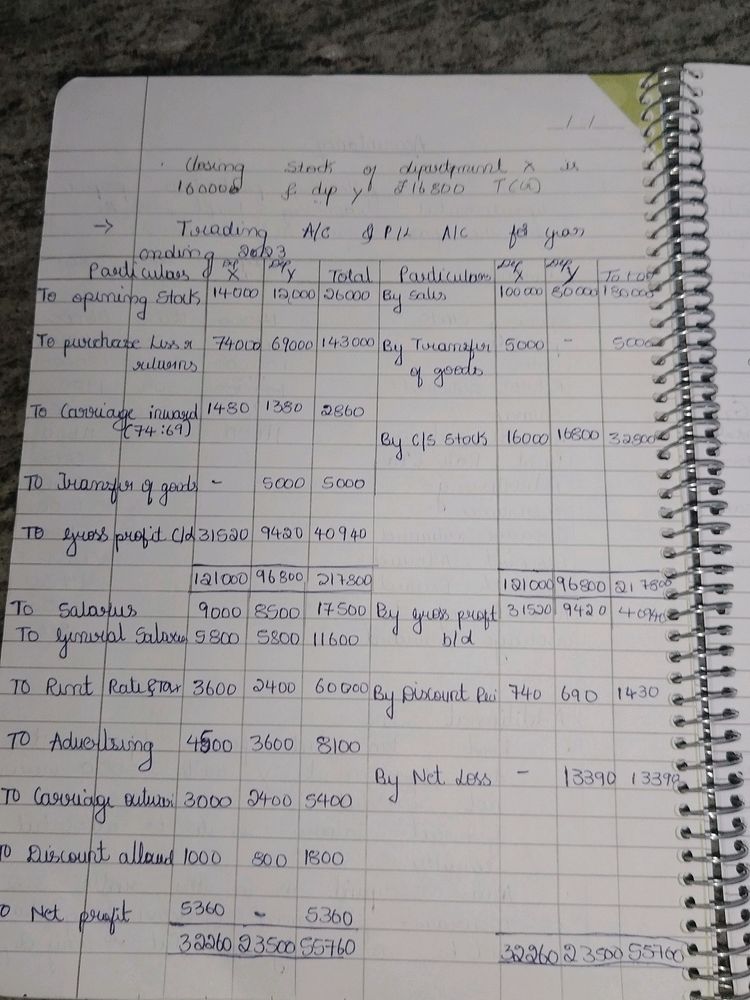 Closing Stock of dipardment X is
160000 & dip y ₹16800
→ Trading A/C & P/L A/C for year
ending 2023
Particulars Dep X Dep Y Total Particulars Dep X Dep Y Total
To opening Stock 14000 12000 26000 By Sales 100000 80000 180000
To purchase Less 74000 69000 143000 By Transfer 5000 - 5000
returns of goods
To Carriage inward 1480 1380 2860
(74:69)
By C/S Stock 16000 16800 32800
To Transfer of goods - 5000 5000
To gross profit C/d 31520 9420 40940
121000 96800 217800 121000 96800 217800
To Salaries 9000 8500 17500 By gross profit 31520 9420 40940
To general Salaries 5800 5800 11600 b/d
To Rent Rate & Tax 3600 2400 60000 By Discount Rei 740 690 1430
To Advertising 4500 3600 8100
By Net Loss - 13390 13390
To Carriage outward 3000 2400 5400
To Discount allowed 1000 800 1800
To Net profit 5360 - 5360
32260 23500 55760 32260 23500 55760